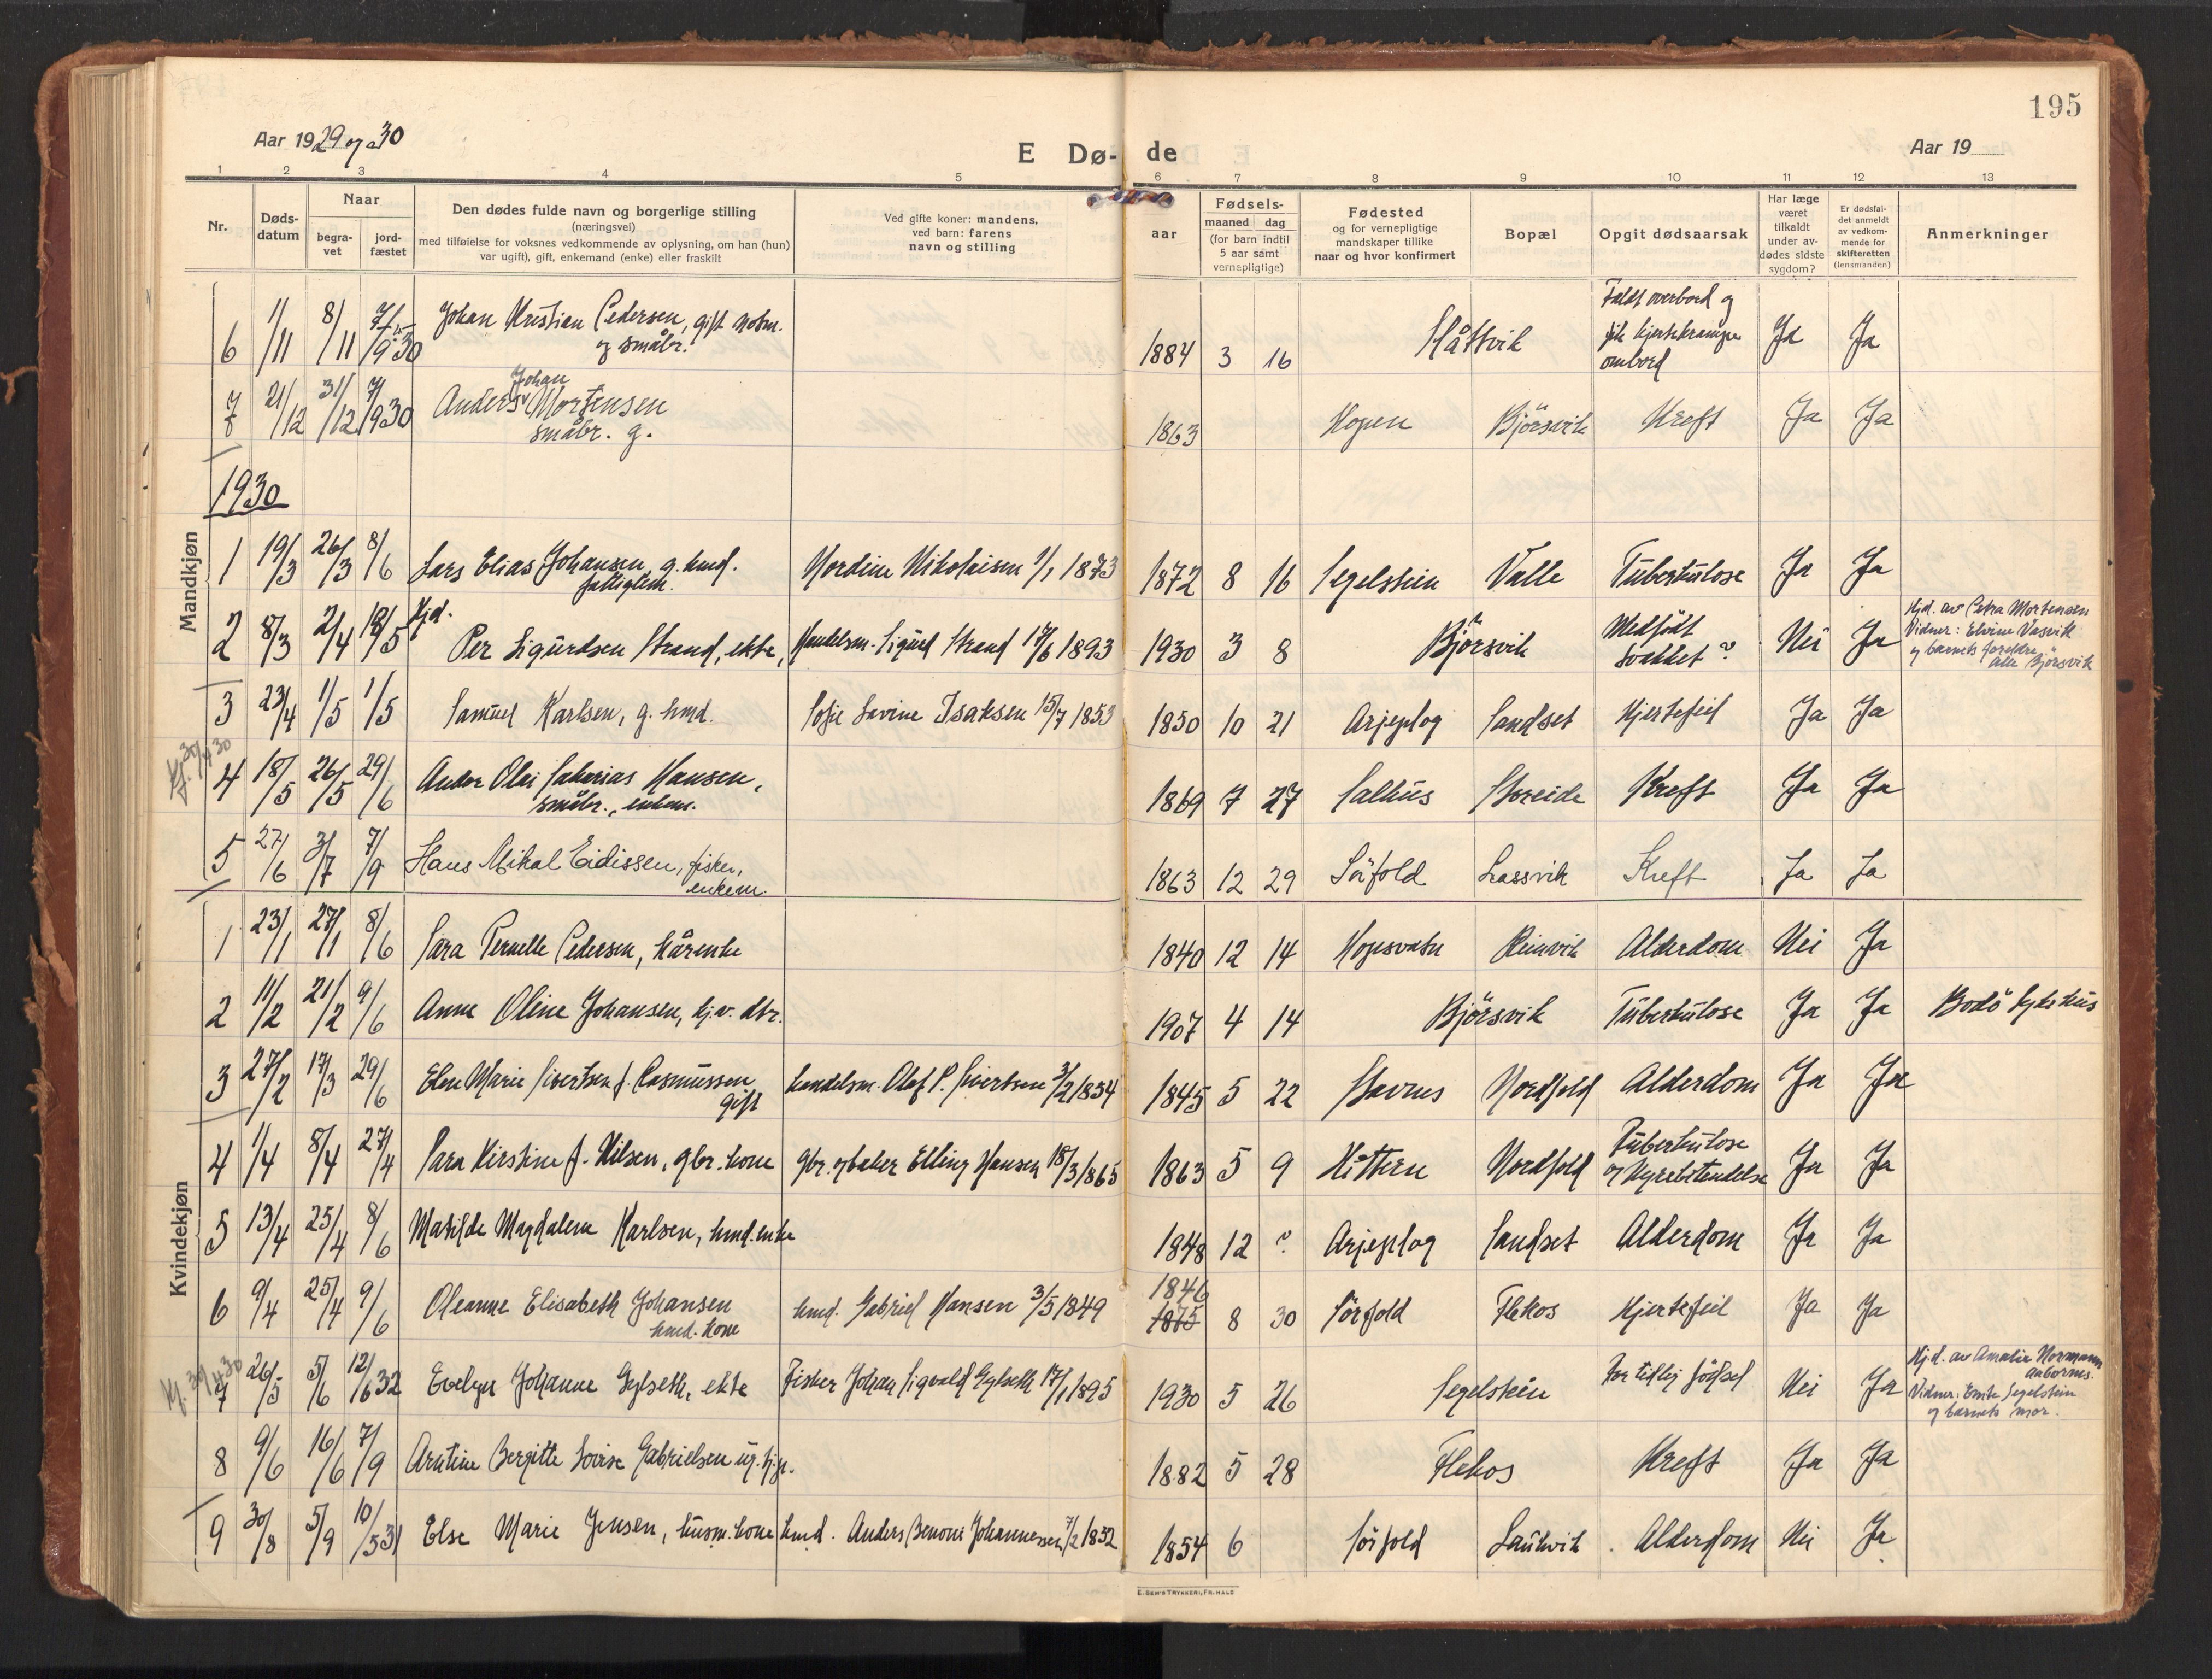 195
Aar 1929 og 30
E Dø-de
Aar 19
1 2 3 4 5 6 7 8 9 10 11 12 13
Nr.
Døds-datum
Naar
begra-vet
jord-fæstet
Den dødes fulde navn og borgerlige stilling
(næringsvei)
med tilføielse for voksnes vedkommende av oplysning, om han (hun)
var ugift), gift, enkemand (enke) eller fraskilt
Ved gifte koner: mandens,
ved barn: farens
navn og stilling
aar
Fødsels-
maaned dag
(for barn indtil
5 aar samt
vernepligtige)
Fødested
og for vernepligtige
mandskaper tillike
naar og hvor konfirmert
Bopæl
Opgit dødsaarsak
Har læge
været
tilkaldt
under av-
dødes sidste
sygdom?
Er dødsfal-
det anmeldt
av vedkom-
mende for
skifteretten
(lensmanden)
Anmerkninger
Mandkjøn
6 1/11 8/11 7/9 30 Johan Kristian Pedersen, gift notm. og småbr. 1884 3 16 Håttvik Faldt overbord og fik hjertekrampe ombord Ja Ja
7 21/12 31/12 7/9 30 Anders Johan Mortensen småbr. g. 1863 Kopen Bjørsvik Kreft Ja Ja
1930
1 19/3 26/3 8/6 Lars Elias Johansen, g. hmd. fattiglem. Nordine Nikolaisen 1/1 1873 1872 8 16 Segelstein Valle Tuberkulose Ja Ja
2 8/3 2/4 19/5 Hjd. Per Sigurdsen Strand, ekte, Handelsm. Sigurd Strand 17/6 1893 1930 3 8 Bjørsvik Medfødt svakhet? Nei Ja Hjd. av Petra Mortensen Vidner: Elvine Vasvik og barnets foreldre, alle Bjørsvik
3 23/4 1/5 1/5 Samuel Karlsen, g. hmd. Sofie Lovine Isaksen 15/7 1853 1850 10 21 Arjeplog Sandset Hjertefeil Ja Ja
4 18/5 26/5 29/6 Andor Olai Sakarias Hansen, småbr., enkem. 1869 7 27 Salhus Storeide Kreft Ja Ja
5 27/6 3/7 7/9 Hans Mikal Eidissen, fisker, enkem. 1863 12 29 Sørfold Lassvik Kreft Ja Ja
Kvindekjøn
1 23/1 27/1 8/6 Sara Pernelle Pedersen, kårenke 1840 12 14 Kopsvatn Reinvik Alderdom Nei Ja
2 11/2 21/2 9/6 Anne Oline Johansen, hj.v. dtr. 1907 4 14 Bjørsvik Tuberkulose Ja Ja Bodø sykehus
3 27/2 17/3 29/6 Elen Marie Sivertsen f. Rasmussen gift handelsm. Olaf P. Sivertsen 3/2 1854 1845 5 22 Stavnes Nordfold Alderdom Ja Ja
4 1/4 8/4 27/4 Sara Kirstine f. Nilsen, gbr. kone gbr. og baker Elling Hansen 18/3 1865 1863 5 9 Hitteren Nordfold Tuberkulose og Nyrebetendelse Ja Ja
5 13/4 25/4 8/6 Matilde Magdalene Karlsen, hmd. enke 1848 12 ? Arjeplog Sandset Alderdom Ja Ja
6 9/4 25/4 9/6 Oleanne Elisabeth Johansen hmd. kone hmd. Gabriel Hansen 3/5 1849 1846 1875 8 30 Sørfold Flekos Hjertefeil Ja Ja
7 26/5 5/6 12/6 32 Evelyn Johanne Gylseth, ekte Fisker Johan Sigvald Gylseth 17/1 1895 1930 5 26 Segelstein For tidlig fødsel Nei Ja Hj.d. av Amalie Normann Vidner: Emte Segelstein og barnets mor.
8 9/6 16/6 7/9 Arntine Bergitte Lovise Gabrielsen ug. hjp. 1882 5 28 Flekos Kreft Ja Ja
9 30/8 5/9 10/5 31 Else Marie Jensen, husm. kone hmd. Anders Benoni Johannessen 7/2 1852 1854 6 Sørfold Laukvik Alderdom Nei Ja
E. SEM'S TRYKKERI, FR.HALD